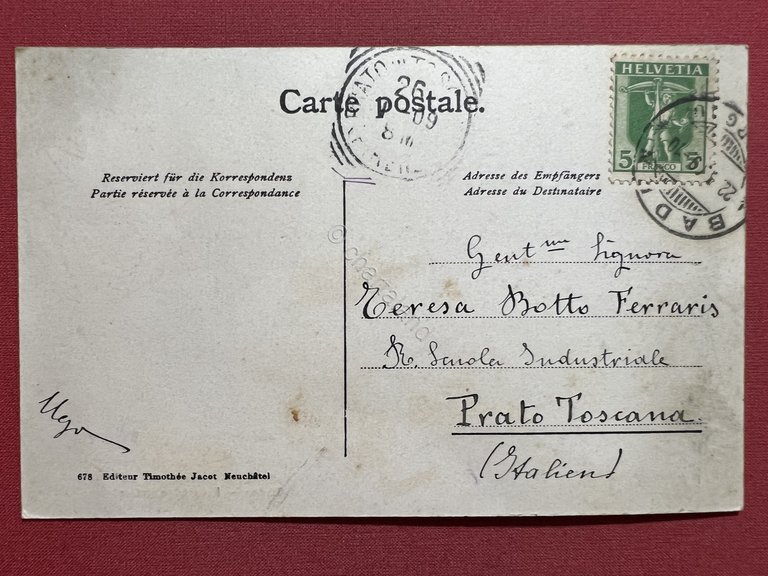 Carte postale.
26
09
HELVETIA
5 5
FRANCO
BAD
Reserviert für die Korrespondenz
Partie réservée à la Correspondance
Adresse des Empfängers
Adresse du Destinataire
Gent.me Signora
Teresa Botto Ferraris
R. Scuola Industriale
Prato Toscana
(Italien)
Ugo
678 Editeur Timothée Jacot Neuchâtel